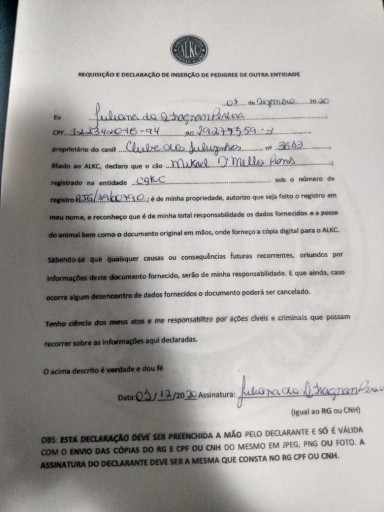 ALKC
REQUISIÇÃO E DECLARAÇÃO DE INSERÇÃO DE PEDIGREE DE OUTRA ENTIDADE
09 de Dezembro 2020
Eu Juliana do
CPF RG
proprietário do canil Clube dos nº 3603
filiado ao ALKC, declaro que o cão Mikael D'Mello
registrado na entidade CBKC sob o número de
registro é de minha propriedade, autorizo que seja feito o registro em
meu nome, e reconheço que é de minha total responsabilidade os dados fornecidos e a posse
do animal bem como o documento original em mãos, onde forneço a cópia digital para o ALKC.
Sabendo-se que quaisquer causas ou consequências futuras recorrentes, oriundos por
informações deste documento fornecido, serão de minha responsabilidade. E que ainda, caso
ocorra algum desencontro de dados fornecidos o documento poderá ser cancelado.
Tenho ciência dos meus atos e me responsabilizo por ações cíveis e criminais que possam
recorrer sobre as informações aqui declaradas.
O acima descrito é verdade e dou fé
Data: 09/12/2020 Assinatura: Juliana do
(Igual ao RG ou CNH)
OBS: ESTA DECLARAÇÃO DEVE SER PREENCHIDA A MÃO PELO DECLARANTE E SÓ É VÁLIDA
COM O ENVIO DAS CÓPIAS DO RG E CPF OU CNH DO MESMO EM JPEG, PNG OU FOTO. A
ASSINATURA DO DECLARANTE DEVE SER A MESMA QUE CONSTA NO RG CPF OU CNH.